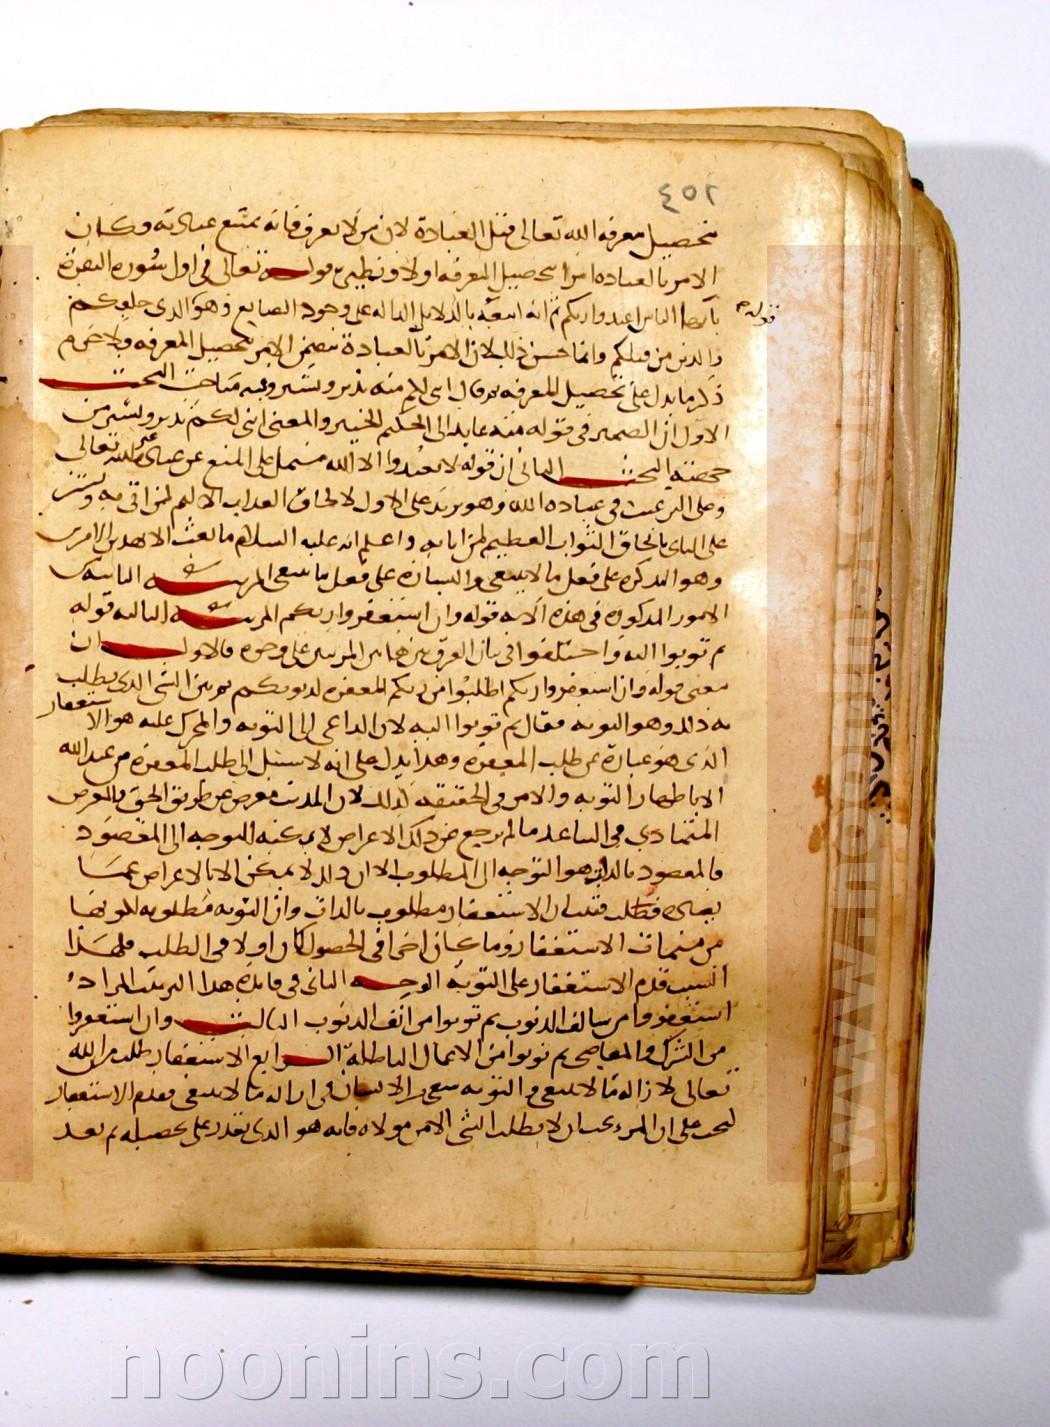 ٤٥٢
تحصيل معرفة الله تعالى قبل العبادة لان من لا يعرف فانه يمتنع عبادته وكان
الامر بالعبادة امرا بتحصيل المعرفة اولا ونظيره قوله تعالى في اول سورة البقرة
يا ايها الناس اعبدوا ربكم ثم انه اتبعه بالدلايل الدالة على وجود الصانع وهو الذي خلقكم
قوله
والذين من قبلكم وانما حسن ذلك لان الامر بالعبادة يتضمن الامر بتحصيل المعرفة فلا جرم
ذكر ما يدل على تحصيل المعرفة ثم قال انني لكم منه نذير وبشير وفيه مباحث البحث
الاول ان الضمير في قوله منه عايد الى الحكيم الخبير والمعنى انني لكم نذير وبشير من
جهته البحث الثاني ان قوله لا تعبدوا الا الله مشتمل على المنع عن عبادة غير الله تعالى
وعلى الترغيب في عبادة الله وهو نذير على الاول لالحاق العذاب الاليم لمن اتى به وبشير
على الثاني بالحاق الثواب العظيم لمن اتى به واعلم انه عليه السلام ما بعث الا لهذين الامرين
وهو النذارة على فعل ما لا ينبغي والبشارة على فعل ما ينبغي المرتبة الثانية من
الامور المذكورة في هذه الاية قوله وان استغفروا ربكم المرتبة الثالثة قوله
ثم توبوا اليه واختلفوا في بيان الفرق بين هاتين المرتبتين على وجوه فالاول ان
معنى قوله وان استغفروا ربكم اطلبوا من ربكم المغفرة لذنوبكم ثم بين الشي الذي يطلب
به ذلك وهو التوبة فقال ثم توبوا اليه لان الداعي الى التوبة والمحرك عليه هو الاستغفار
الذي هو عبارة عن طلب المغفرة وهذا يدل على انه لا سبيل الى طلب المغفرة من عند الله
الا باظهار التوبة والامر في الحقيقة كذلك لان المذنب معرض عن طريق الحق والمعرض
المتمادي في التباعد ما لم يرجع عن ذلك الاعراض لا يمكنه التوجه الى المقصود
فالمقصود بالذات هو التوجه الى المطلوب الا ان ذلك لا يمكن الا بالاعراض عما
يضاده فثبت ان الاستغفار مطلوب بالذات وان التوبة مطلوبة لكونها
من متممات الاستغفار وما كان اخرا في الحصول كان اولا في الطلب فلهذا
السبب قدم الاستغفار على التوبة الوجه الثاني في فايدة هذا الترتيب المراد
استغفروا من سالف الذنوب ثم توبوا من انف الذنوب الثالث وان استغفروا
من الشرك والمعاصي ثم توبوا من الاعمال الباطلة الرابع الاستغفار طلب من الله
تعالى لازالة ما لا ينبغي والتوبة سعي من الانسان في ازالة ما لا ينبغي فقدم الاستغفار
ليدل على ان المرء يجب ان لا يطلب الشي الا من مولاه فانه هو الذي يقدر على تحصيله ثم بعد
www.noonins.com
noonins.com